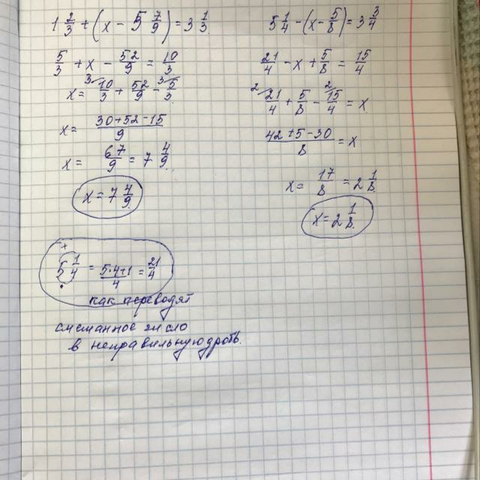 1 2/3 + (x - 5 7/9) = 3 1/3
5/3 + x - 52/9 = 10/3
x = 3 10/3 + 52/9 - 3 5/3
x = (30+52-15)/9
x = 67/9 = 7 4/9
x = 7 4/9
5 1/4 - (x - 5/8) = 3 3/4
21/4 - x + 5/8 = 15/4
2 21/4 + 5/8 - 2 15/4 = x
(42+5-30)/8 = x
x = 17/8 = 2 1/8
x = 2 1/8.
5 1/4 = (5·4+1)/4 = 21/4
как переводят
смешанное число
в неправильную дробь.